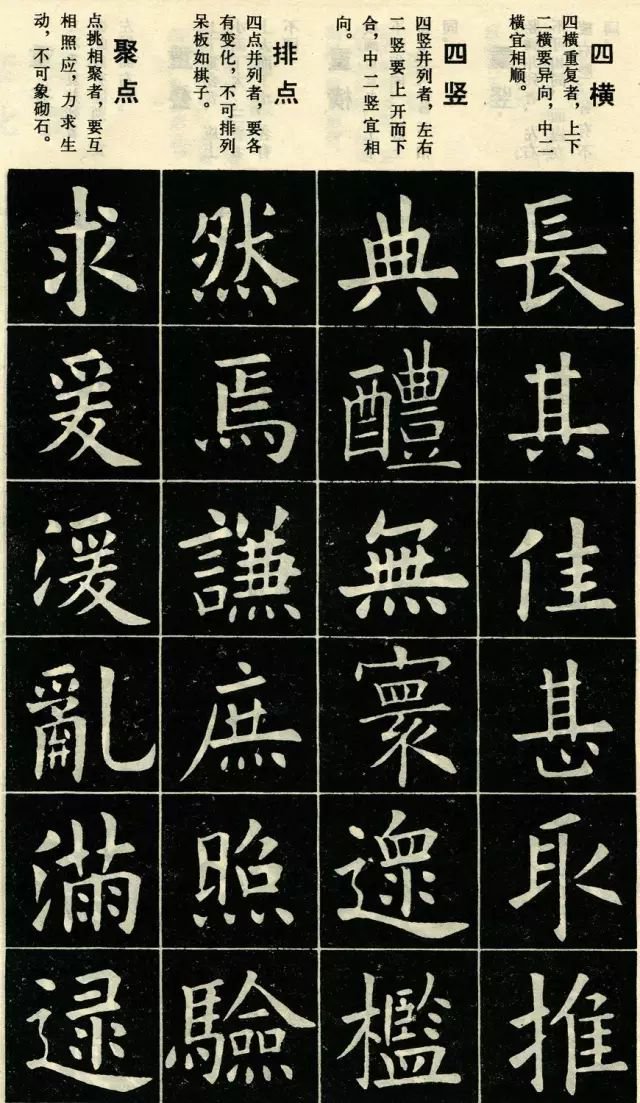 四横
四横重复者，上下
二横要异向，中二
横宜相顺。
長
其
佳
甚
取
推
四竖
四竖并列者，左右
二竖要上开而下
合，中二竖宜相
向。
典
醴
無
寰
還
檻
排点
四点并列者，要各
有变化，不可排列
呆板如棋子。
然
焉
謙
庶
照
驗
聚点
点挑相聚者，要互
相照应，力求生
动，不可象砌石。
求
爰
湲
亂
滿
逮